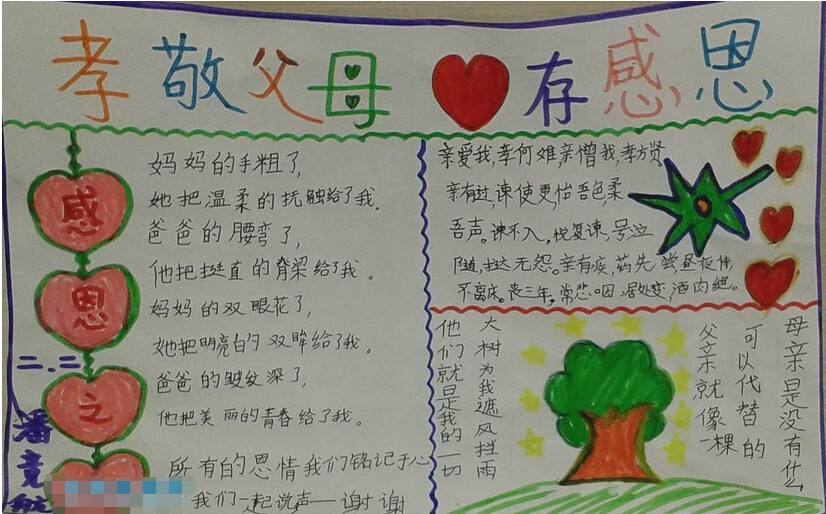 孝敬父母 存感恩
感
恩
之
二.二
潘竞航
妈妈的手粗了,
她把温柔的抚触给了我.
爸爸的腰弯了,
他把挺直的脊梁给了我。
妈妈的双眼花了,
她把明亮的双眸给了我。
爸爸的皱纹深了,
他把美丽的青春给了我。
所有的恩情我们铭记于心
我们一起说声——谢谢
亲爱我,孝何难,亲憎我,孝方贤.
亲有过,谏使更,怡吾色,柔
吾声。谏不入,悦复谏,号泣
随,挞无怨。亲有疾,药先尝,昼夜侍,
不离床。丧三年,常悲咽,居处变,酒肉绝。
母亲是没有什么
可以代替的
父亲就像一棵
大树为我遮风挡雨
他们就是我的一切